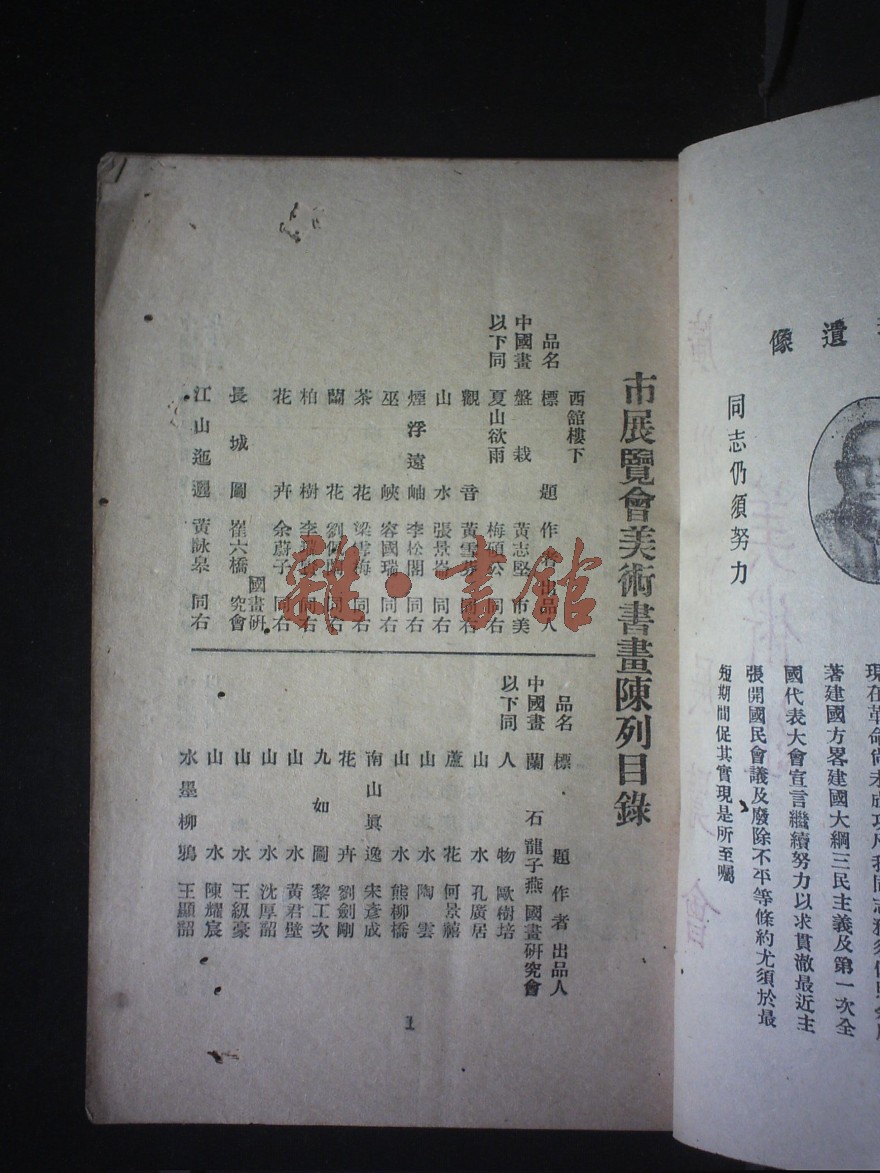 遺像
同志仍須努力
著建國方畧建國大綱三民主義及第一次全
國代表大會宣言繼續努力以求貫澈最近主
張開國民會議及廢除不平等條約尤須於最
短期間促其實現是所至囑
市展覽會美術書畫陳列目錄
西舘樓下
品名 標題 作者 出品人
中國畫 盤栽 黃志堅 市美
以下同 夏山欲雨 梅 公 同右
觀音 黃雪 同右
山水 張景 同右
煙浮遠岫 李松閣 同右
巫峽 容國瑞 同右
茶花 梁雪梅 同右
蘭花 劉 同右
柏樹 李 同右
花卉 余蔚子 同右
長城圖 崔六橋 國畫研究會
江山迤邐 黃詠皋 同右
品名 標題 作者 出品人
中國畫 蘭石 龍子燕 國畫研究會
以下同 人物 歐樹培
山水 孔廣居
蘆花 何景禧
山水 陶雲
山水 熊柳橋
南山真逸 宋彥成
花卉 劉劍剛
九如圖 黎工次
山水 黃君璧
山水 沈厚韶
山水 王級豪
山水 陳耀宸
水墨柳鴉 王顯韶
1
雜·書館